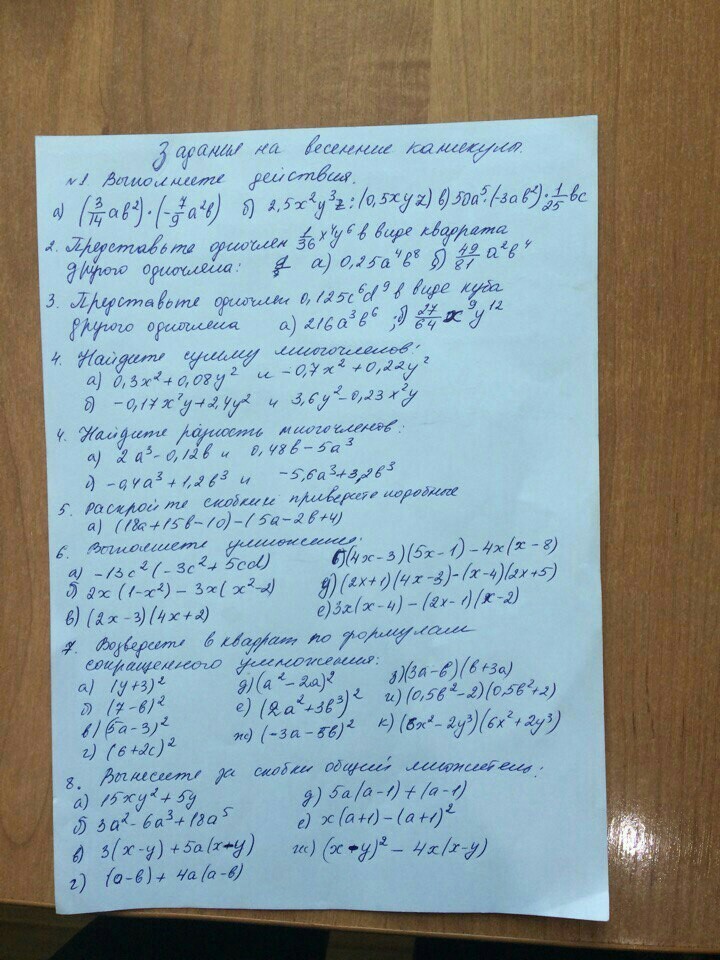 Задания на весенние каникулы.
№1 Выполните действия.
а) (3/14 ab²)·(-7/9 a²b) б) 2,5x²y³z:(0,5xyz) в) 50a⁵·(-3ab²)·1/25 bc
2. Представьте одночлен 1/36 x⁴y⁶ в виде квадрата
другого одночлена: а) 0,25a⁴b⁸ б) 49/81 a²b⁴
3. Представьте одночлен 0,125c⁶d⁹ в виде куба
другого одночлена а) 216a³b⁶ ; б) 27/64 x⁹y¹²
4. Найдите сумму многочленов:
а) 0,3x²+0,08y² и -0,7x²+0,22y²
б) -0,17x²y+2,4y² и 3,6y²-0,23x²y
4. Найдите разность многочленов:
а) 2a³-0,12b и 0,48b-5a³
б) -0,4a³+1,2b³ и -5,6a³+3,2b³
5. Раскройте скобки и приведите подобные
а) (18a+15b-10)-(5a-2b+4)
6. Выполните умножение:
а) -13c²(-3c²+5cd)
б) 2x(1-x²)-3x(x²-2)
в) (2x-3)(4x+2)
г) (4x-3)(5x-1)-4x(x-8)
д) (2x+1)(4x-3)-(x-4)(2x+5)
е) 3x(x-4)-(2x-1)(x-2)
7. Возведите в квадрат по формулам
сокращенного умножения:
а) (y+3)²
б) (7-b)²
в) (5a-3)²
г) (6+2c)²
д) (a²-2a)²
е) (2a²+3b³)²
ж) (-3a-5b)²
з) (3a-b)(b+3a)
и) (0,5b²-2)(0,5b²+2)
к) (6x²-2y³)(6x²+2y³)
8. Вынесите за скобки общий множитель:
а) 15xy²+5y
б) 3a²-6a³+18a⁵
в) 3(x-y)+5a(x-y)
г) (a-b)+4a(a-b)
д) 5a(a-1)+(a-1)
е) x(a+1)-(a+1)²
ж) (x-y)²-4x(x-y)